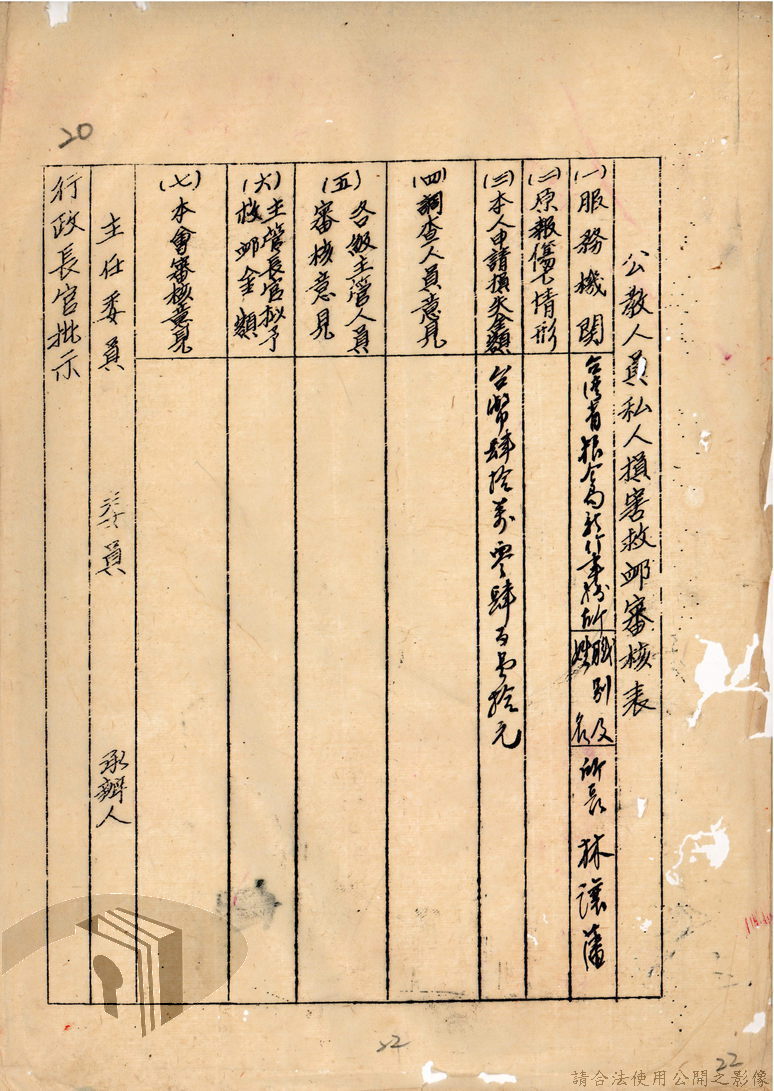 20
公教人員私人損害救卹審核表
(一)服務機關
台灣省糧食局新竹事務所
職別及姓名
所長 林讓蒲
(二)原報傷亡情形
(三)本人申請損失金額
台幣肆拾萬零肆百壹拾元
(四)調查人員意見
(五)各級主管人員審核意見
(六)主管長官擬予救卹金額
(七)本會審核意見
主任委員 委員 承辦人
行政長官批示
22
22
請合法使用公開之影像